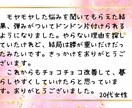 モヤモヤした悩みを聞いてもらえた結
果、弾みがついてドンドン片付けられる
ようになりました。やらない理由を探し
ていたけれど、結局は腰が重いだけだっ
たみたいです。きっかけをありがとうご
ざいます。
これからもチョコチョコ改善して、暮
らしやすくしていけたらと思っていま
す。ありがとうございます。
20代女性